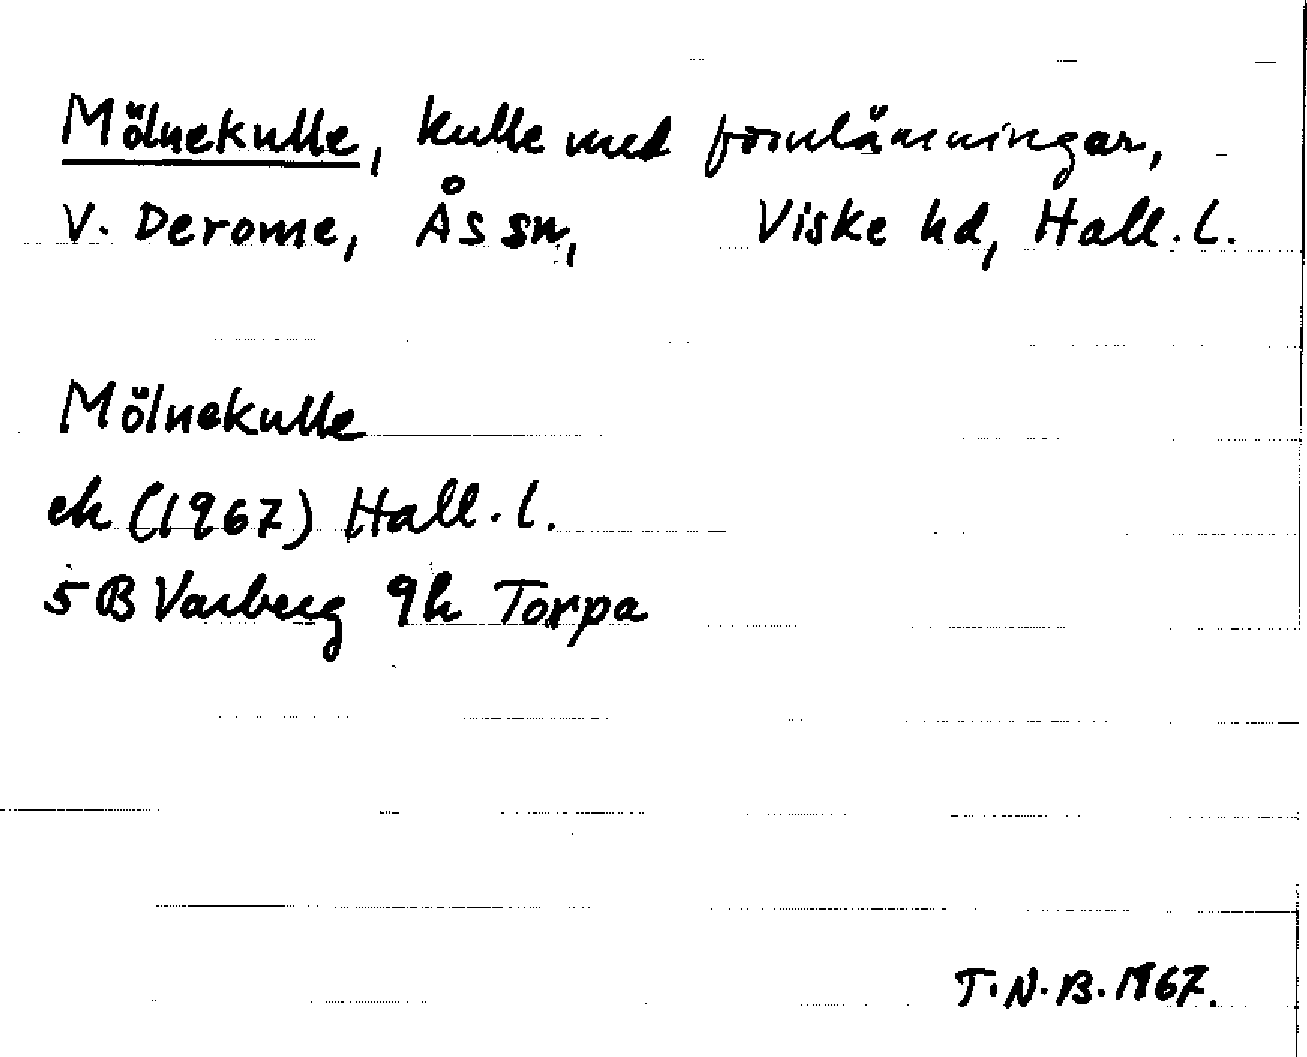 Mölnekulle, kulle med fornlämningar,
V. Derome, Ås sn, Viske hd, Hall. l.
Mölnekulle
ek (1967) Hall. l.
5 B Varberg 9h Torpa
T.N.B. 1967.